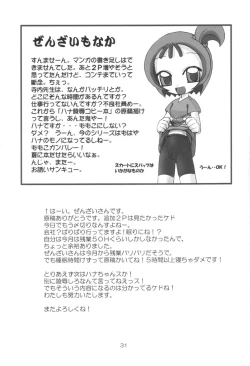 ぜんざいもなか
すんませーん。マンガの書き足しはで
きませんでした。あと2P増やそうと
思ってたんだけど、コンテまでいって
断念。ちぇっ。
寺内先生は、なんかバッチリとか。
どこにそんな時間があるんですか?
仕事行ってないんですか?不良社員めー。
がんばって原稿描いて
ハナですかー。ももこにしないと
ダメ?うーん。今のシリーズはもはや
ハナのモノになってるしー。
ももこガンバレー!
夏に本がだせたらいいなーと思います。
んしゃ、またー。
お誘いサンキュー。
スカートにスパッツは
いかがなものか
うーん…OK!
!はーい、ぜんざいさんね!
原稿ありがとうです。追加2Pは見たかったケド
今日でもう〆切りなんですよねー。
会社?ばりばり行ってますよ!眠りにね!?
自分は今月は残業50Hくらいしかしなかったんで、
ちょっと余裕ありました。
ぜんざいさんは今月から残業バリバリだそうです。
でも睡眠時間けずって原稿かいてね!5時間以上寝ちゃダメです!
とりあえず次はハナちゃんスか!
でもそういう内容になるのは分かってるけどね!
わたしも努力いたします。
またよろしくね!
31